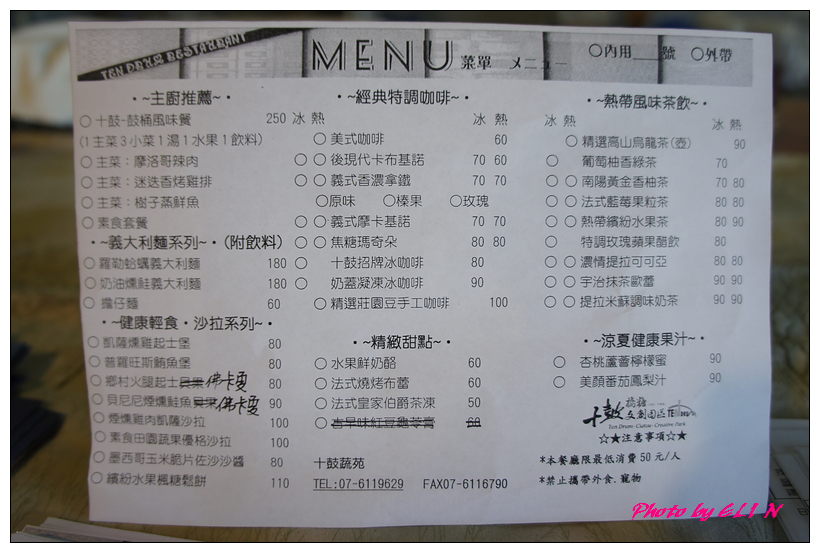 TEN DRUM RESTAURANT
MENU 菜單 メニュー
○內用___號 ○外帶
·~主廚推薦~·
○十鼓-鼓桶風味餐 250
(1主菜3小菜1湯1水果1飲料)
○主菜：摩洛哥辣肉
○主菜：迷迭香烤雞排
○主菜：樹子蒸鮮魚
○素食套餐
·~義大利麵系列~·(附飲料)
○羅勒蛤蠣義大利麵 180
○奶油燻鮭義大利麵 180
○擔仔麵 60
·~健康輕食·沙拉系列~·
○凱薩燻雞起士堡 80
○普羅旺斯鮪魚堡 80
○鄉村火腿起士貝果 佛卡夏 80
○貝尼尼煙燻鮭魚貝果 佛卡夏 90
○煙燻雞肉凱薩沙拉 100
○素食田園蔬果優格沙拉 100
○墨西哥玉米脆片佐沙沙醬 80
○繽紛水果楓糖鬆餅 110
·~經典特調咖啡~·
冰 熱 冰 熱
○美式咖啡 60
○ ○後現代卡布基諾 70 60
○ ○義式香濃拿鐵 70 70
○原味 ○榛果 ○玫瑰
○ ○義式摩卡基諾 70 70
○ ○焦糖瑪奇朵 80 80
○ 十鼓招牌冰咖啡 80
○ 奶蓋凝凍冰咖啡 90
○精選莊園豆手工咖啡 100
·~精緻甜點~·
○水果鮮奶酪 60
○法式燒烤布蕾 60
○法式皇家伯爵茶凍 50
○古早味紅豆龜苓膏 60
十鼓蔬苑
TEL:07-6119629 FAX07-6116790
·~熱帶風味茶飲~·
冰 熱 冰 熱
○精選高山烏龍茶(壺) 90
○ 葡萄柚香綠茶 70
○ ○南陽黃金香柚茶 70 80
○ ○法式藍莓果粒茶 80 80
○ ○熱帶繽紛水果茶 80 90
○ 特調玫瑰蘋果醋飲 80
○ ○濃情提拉可可亞 80 80
○ ○宇治抹茶歐蕾 90 90
○ ○提拉米蘇調味奶茶 90 90
·~涼夏健康果汁~·
○ 杏桃蘆薈檸檬蜜 90
○ 美顏番茄鳳梨汁 90
十鼓 橋糖 文創園區
Ten Drum Ciatou Creative Park
☆★注意事項☆★
*本餐廳限最低消費50元/人
*禁止攜帶外食.寵物
Photo by ELIN